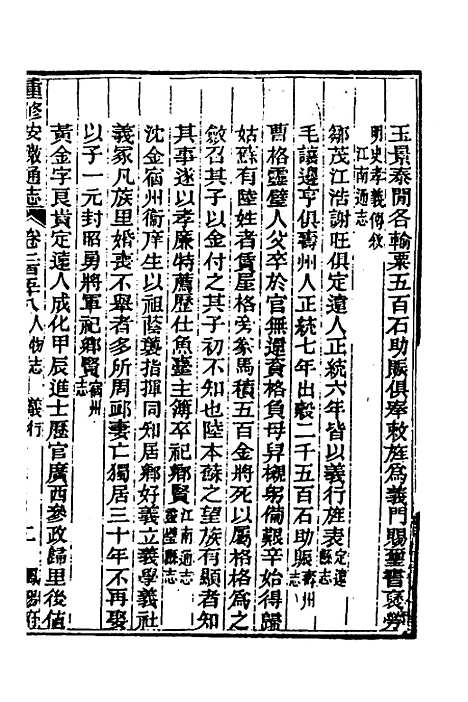 玉景泰閒各輸粟五百石助賑俱奉敕旌爲義門賜璽書褒勞
明史孝義傳敘
江南通志
鄒茂江浩謝旺俱定遠人正統六年皆以義行旌表定遠縣志
毛讓邊亨俱壽州人正統七年出穀二千五百石助賑壽州志
曹格靈璧人父卒於官無還資格負母舁櫬躬備艱辛始得歸
姑蘇有陸姓者賃屋格旁叅馬積五百金將死以屬格格爲之
斂召其子以金付之其子初不知也陸本蘇之望族有顯者知
其事遂以孝廉特薦歷仕魚臺主簿卒祀鄉賢江南通志
靈璧縣志
沈金宿州衞庠生以祖蔭襲指揮同知居鄉好義立義學義社
義冢凡族里婚喪不舉者多所周䘏妻亡獨居三十年不再娶
以子一元封昭勇將軍祀鄉賢宿州志
黃金字良貴定遠人成化甲辰進士歷官廣西參政歸里後值
重修安徽通志 卷二百五八 人物志 義行 二 鳳陽府